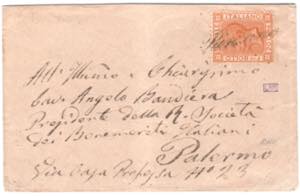 ITALIANO
All' Illmo e Chiarissimo
Cav. Angelo Bandiera
Presidente della R. Società
dei Benemeriti Italiani
Palermo
Via Casa Professa N° 23